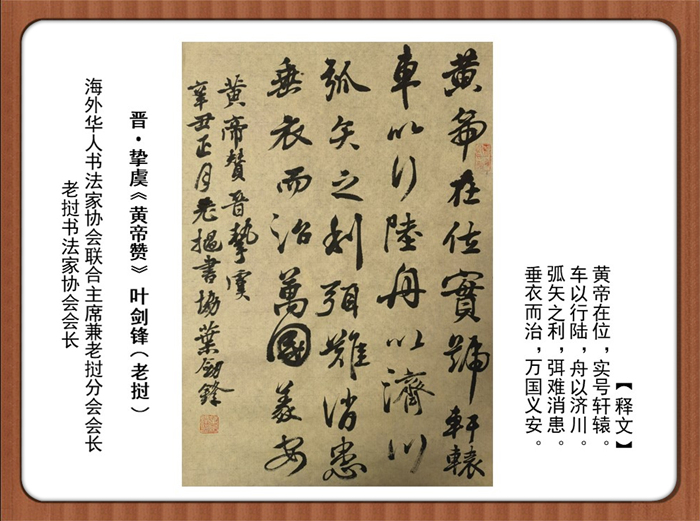 【释文】
黄帝在位，实号轩辕。
车以行陆，舟以济川。
弧矢之利，弭难消患。
垂衣而治，万国义安。
黄帝在位實號軒轅
車以行陸舟以濟川
弧矢之利弭難消患
垂衣而治萬國義安
黄帝贊晋摯虞
辛丑正月老撾書協葉劍鋒
晋·挚虞《黄帝赞》 叶剑锋（老挝）
海外华人书法家协会联合主席兼老挝分会会长
老挝书法家协会会长